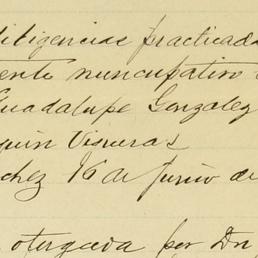 diligencias practicada
ento nuncupativo
Guadalupe Gonzalez
quin Viseras
chez 16 de Junio de
otorgada por Dn